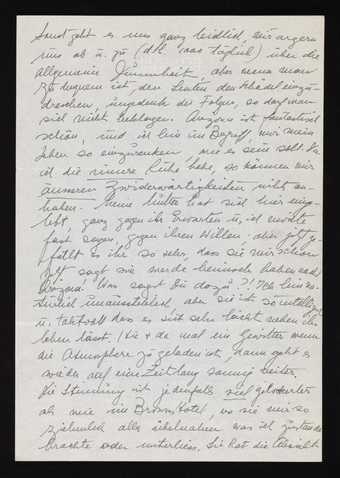 Sonst geht es uns ganz leidlich, wir ärgern
uns ab u. zu (d.h. 1000 täglich) über die
allgemeine Dummheit, aber wenn man
zu bequem ist, den Leuten den Schädel einzu-
dreschen, ungeachtet der Folgen, so darf man
sich nicht beklagen. Arizona ist fantastisch
schön, und ich bin im Begriff, mir mein
Leben so einzurenken, wie es sein soll. So
ich die innere Ruhe habe, so können mir
äusseren Zwiderwärtigkeiten nicht an-
haben. Meine Mutter hat sich hier einge-
lebt, ganz gegen ihr Erwarten u. ich möchte
fast sagen, gegen ihren Willen. aber jetzt ge-
fällt es ihr so sehr, dass sie mir schon
oft sagt sie werde heimweh haben nach
Arizona! Was sagst Du dazu?! Ich bin na-
türlich aber sie ist so
u. taktvoll dass es sich sehr leicht neben ihr
leben lässt. Hie & da mal ein Gewitter wenn
die Atmosphäre zu geladen ist, dann geht es
wieder auf eine Zeit lang sonnig heiter.
Die Stimmung ist jedenfalls viel
als wie im wo sie mir so
ziemlich alles was ich
brachte oder unterliess. Sie hat die Absicht